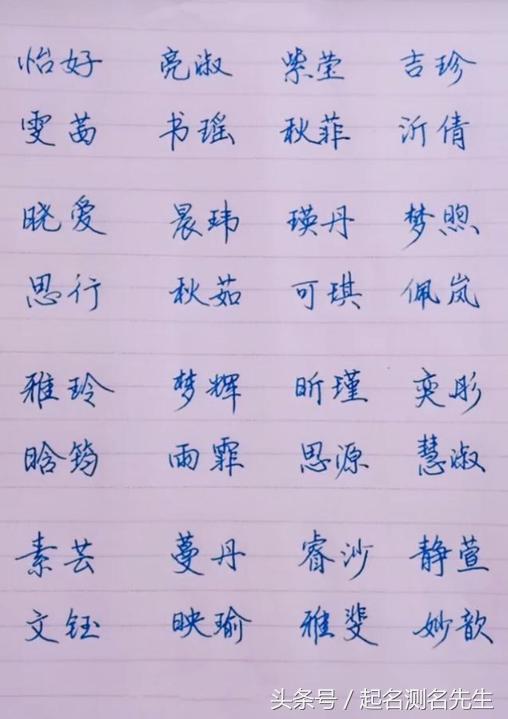 怡好 亮淑 紫莹 吉珍
雯茜 书瑶 秋菲 沂倩
晓爱 晨玮 瑛丹 梦煦
思行 秋茹 可琪 佩岚
雅玲 梦辉 昕瑾 奕彤
晗筠 雨霏 思源 慧淑
素芸 蔓丹 睿沙 静萱
文钰 映瑜 雅斐 妙歆
头条号 / 起名测名先生